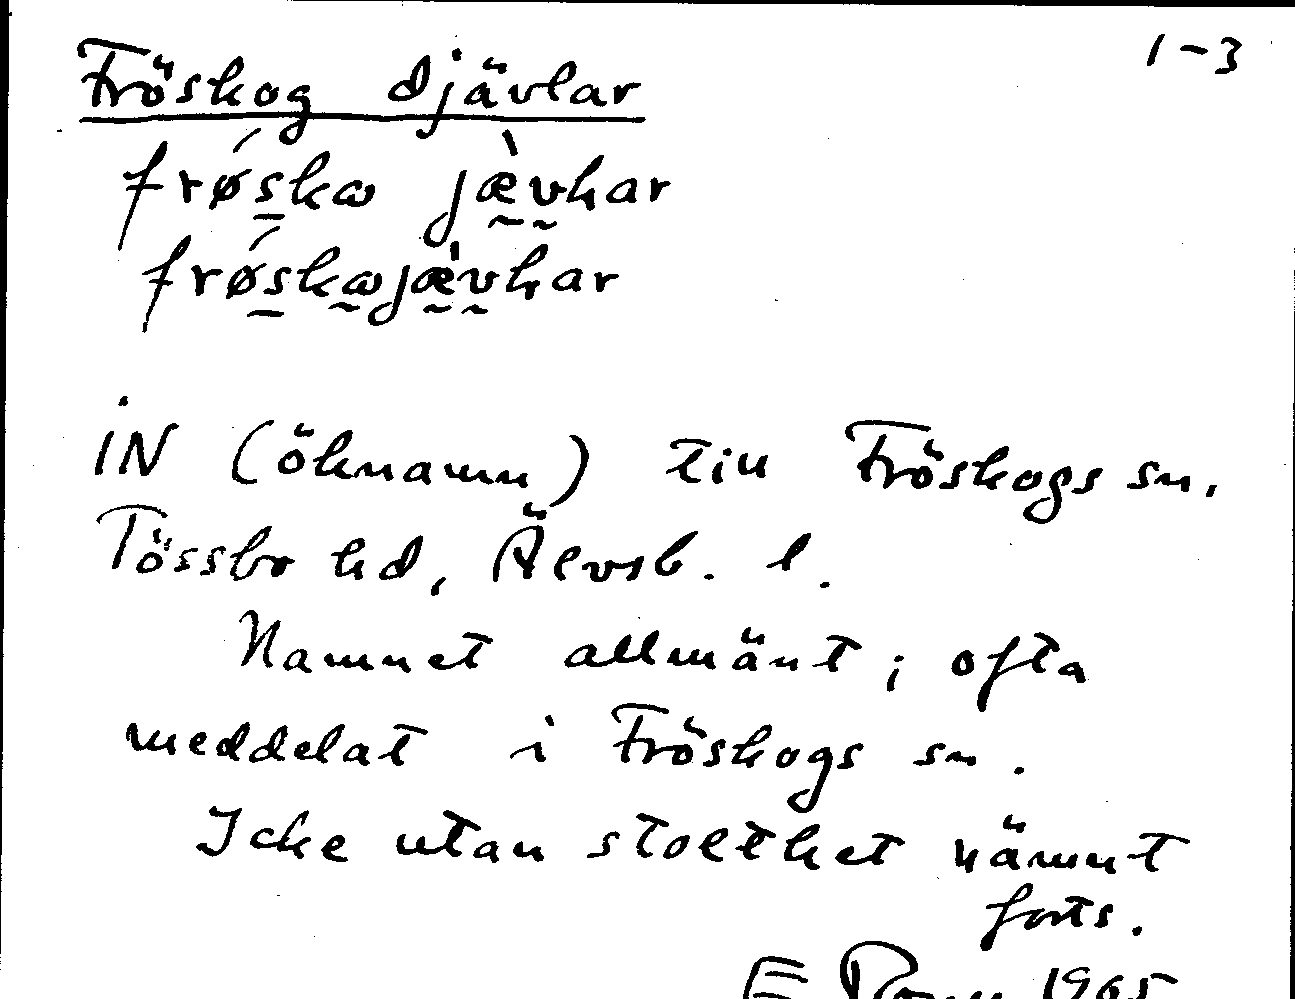 1-3
Fröskog djävlar
frǿska jæ̀vlar
frǿskajæ̀vlar
iN (öknamn) till Fröskogs sn,
Tössbo hd, Älvsb. l.
Namnet allmänt; ofta
meddelat i Fröskogs sn.
Icke utan stolthet nämnt
forts.
E 1965